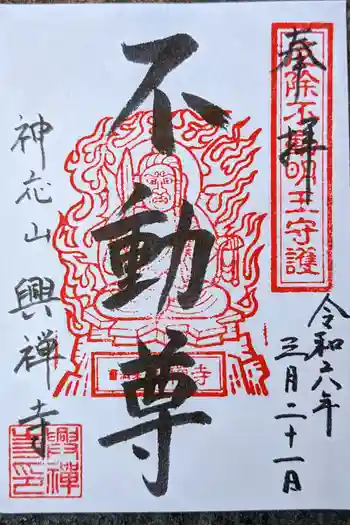 奉拝
厄除不動明王守護
令和六八年
三月二十一日
不動尊
神応山 興禅寺
興禅寺印